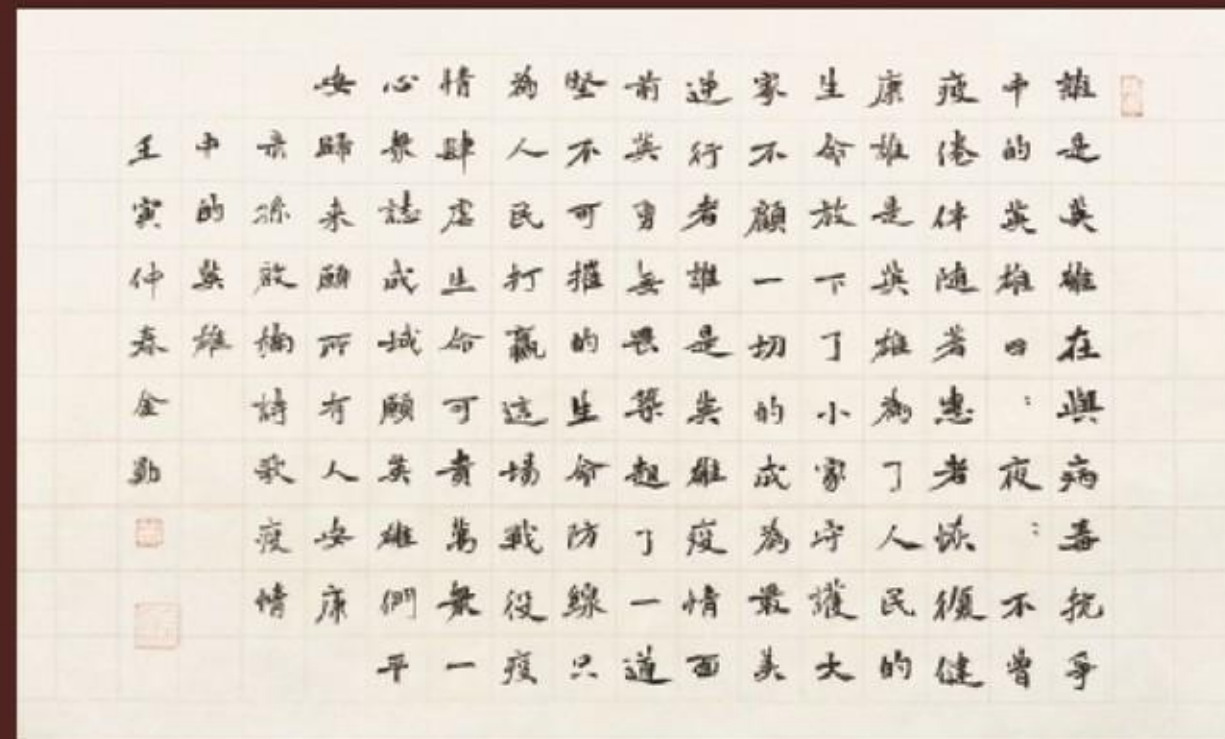 誰是英雄在與病毒抗爭
中的英雄日〻夜〻不曾
疲倦伴随著患者恢復健
康誰是英雄為了人民的
生命放下了小家守護大
家不顧一切的成為最美
逆行者誰是英雄疫情面
前英勇無畏築起了一道
堅不可摧的生命防線只
為人民打贏這場戰役疫
情肆虐生命可貴萬衆一
心衆誌成城願英雄們平
安歸来願所有人安康
录孫啟楠詩歌疫情
中的英雄
壬寅仲春金勤